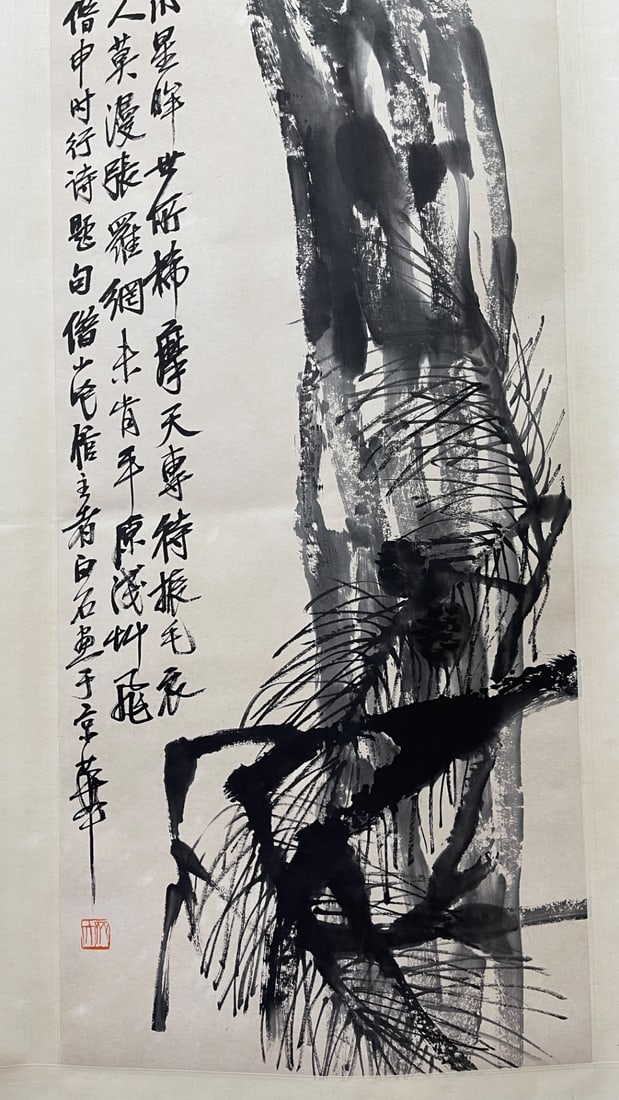 星眸世所稀摩天專待振毛衣
人莫漫張羅網未肯平原淺艸飛
借申時行詩題句借山吟館主者白石畫于京華